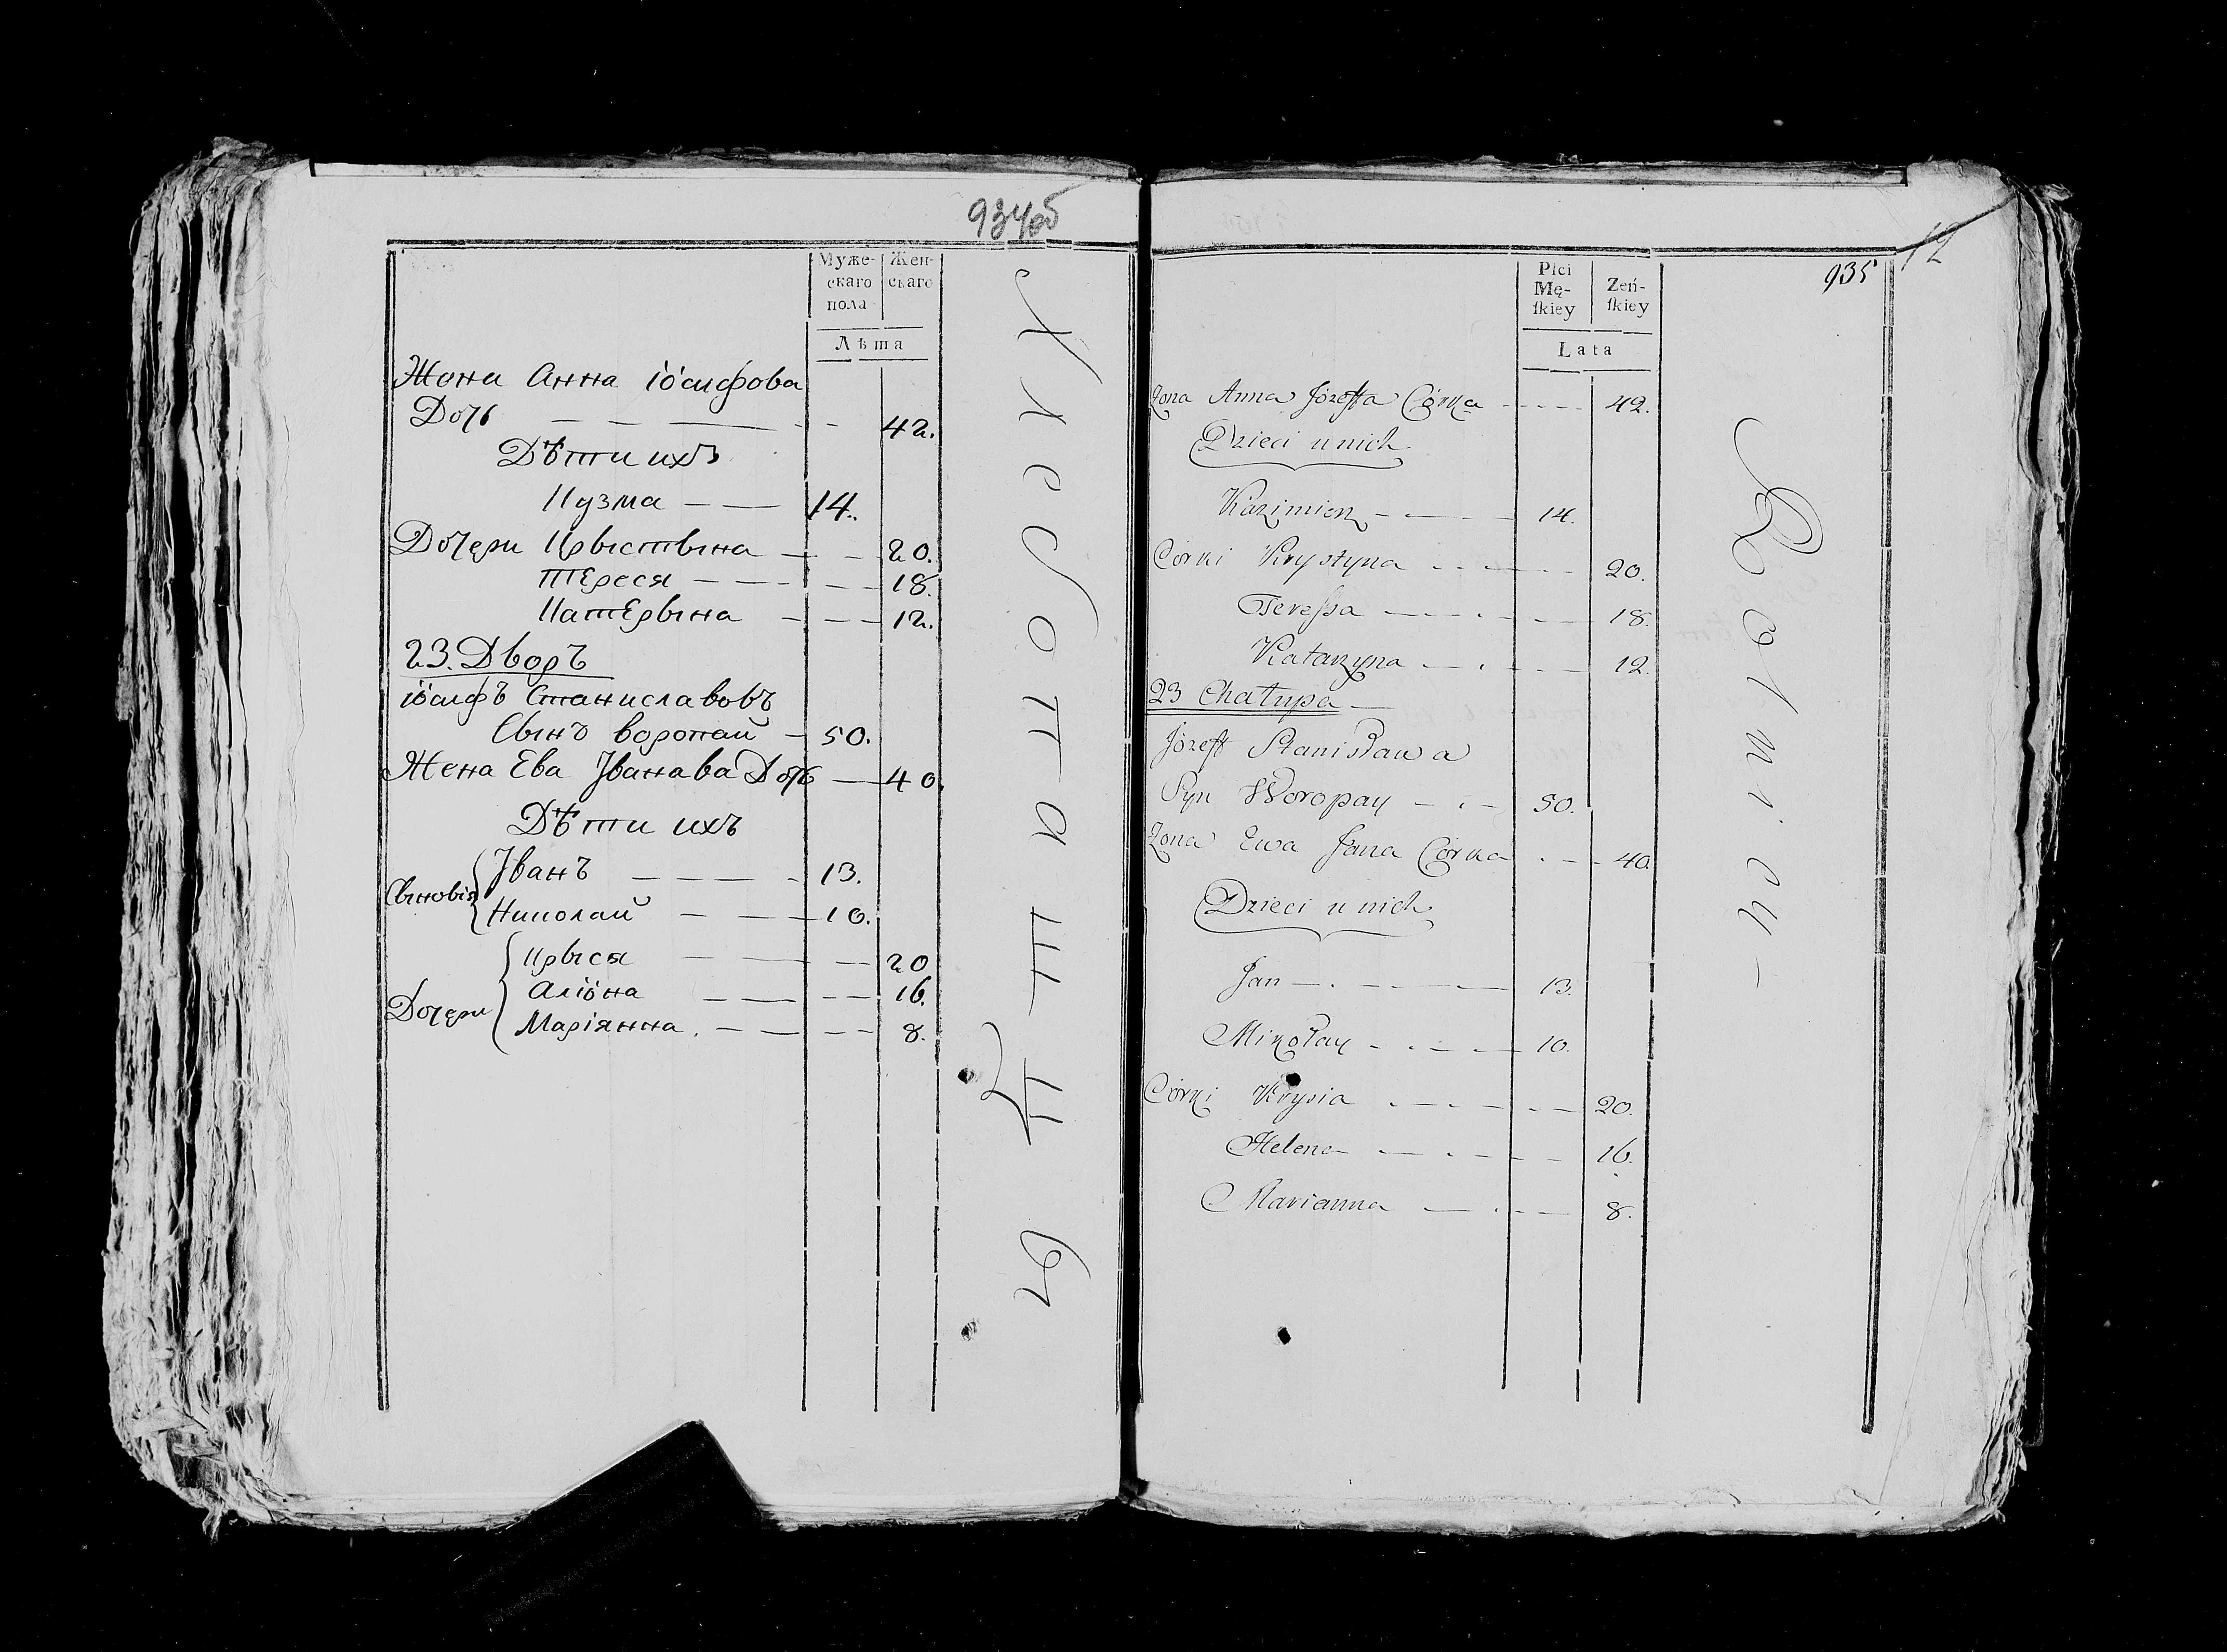 934об
Муже-
скаго
пола
Жен-
скаго
Лѣта
Жена Анна іосифова
Дочь — — — 42.
Дѣти ихъ
Кузма — — 14.
Дочери Крыстына — — 20.
Тереся — — — 18.
Катерына — — 12.
23. Дворъ
іосифъ Станиславовъ
Сынъ воропай — 50.
Жена Ева Іванава Дочь — 40.
Дѣти ихъ
Сыновія
Іванъ — — — 13.
Николай — — 10.
Дочери
Крыся — — 20
Аліона — — 16.
Маріянна. — — 8.
Хлебопашцы
935
12
Płci
Mę-
ſkiey
Zeń-
ſkiey
Lata
Zona Anna Józefta Córka - - - - 42.
Dzieci u nich
Kazimierz — — 14.
Córki Krystyna — — 20.
Teressa — — 18.
Katarzyna — — 12.
23 Chałupa —
Józeft Stanisława
Syn Woropay — — 50.
Zona Ewa Jana Córka — — 40.
Dzieci u nich
Jan — — — 13.
Mikołay — — 10.
Córki Krysia — — 20.
Helena — — 16.
Marianna — — 8.
Rolnicy -